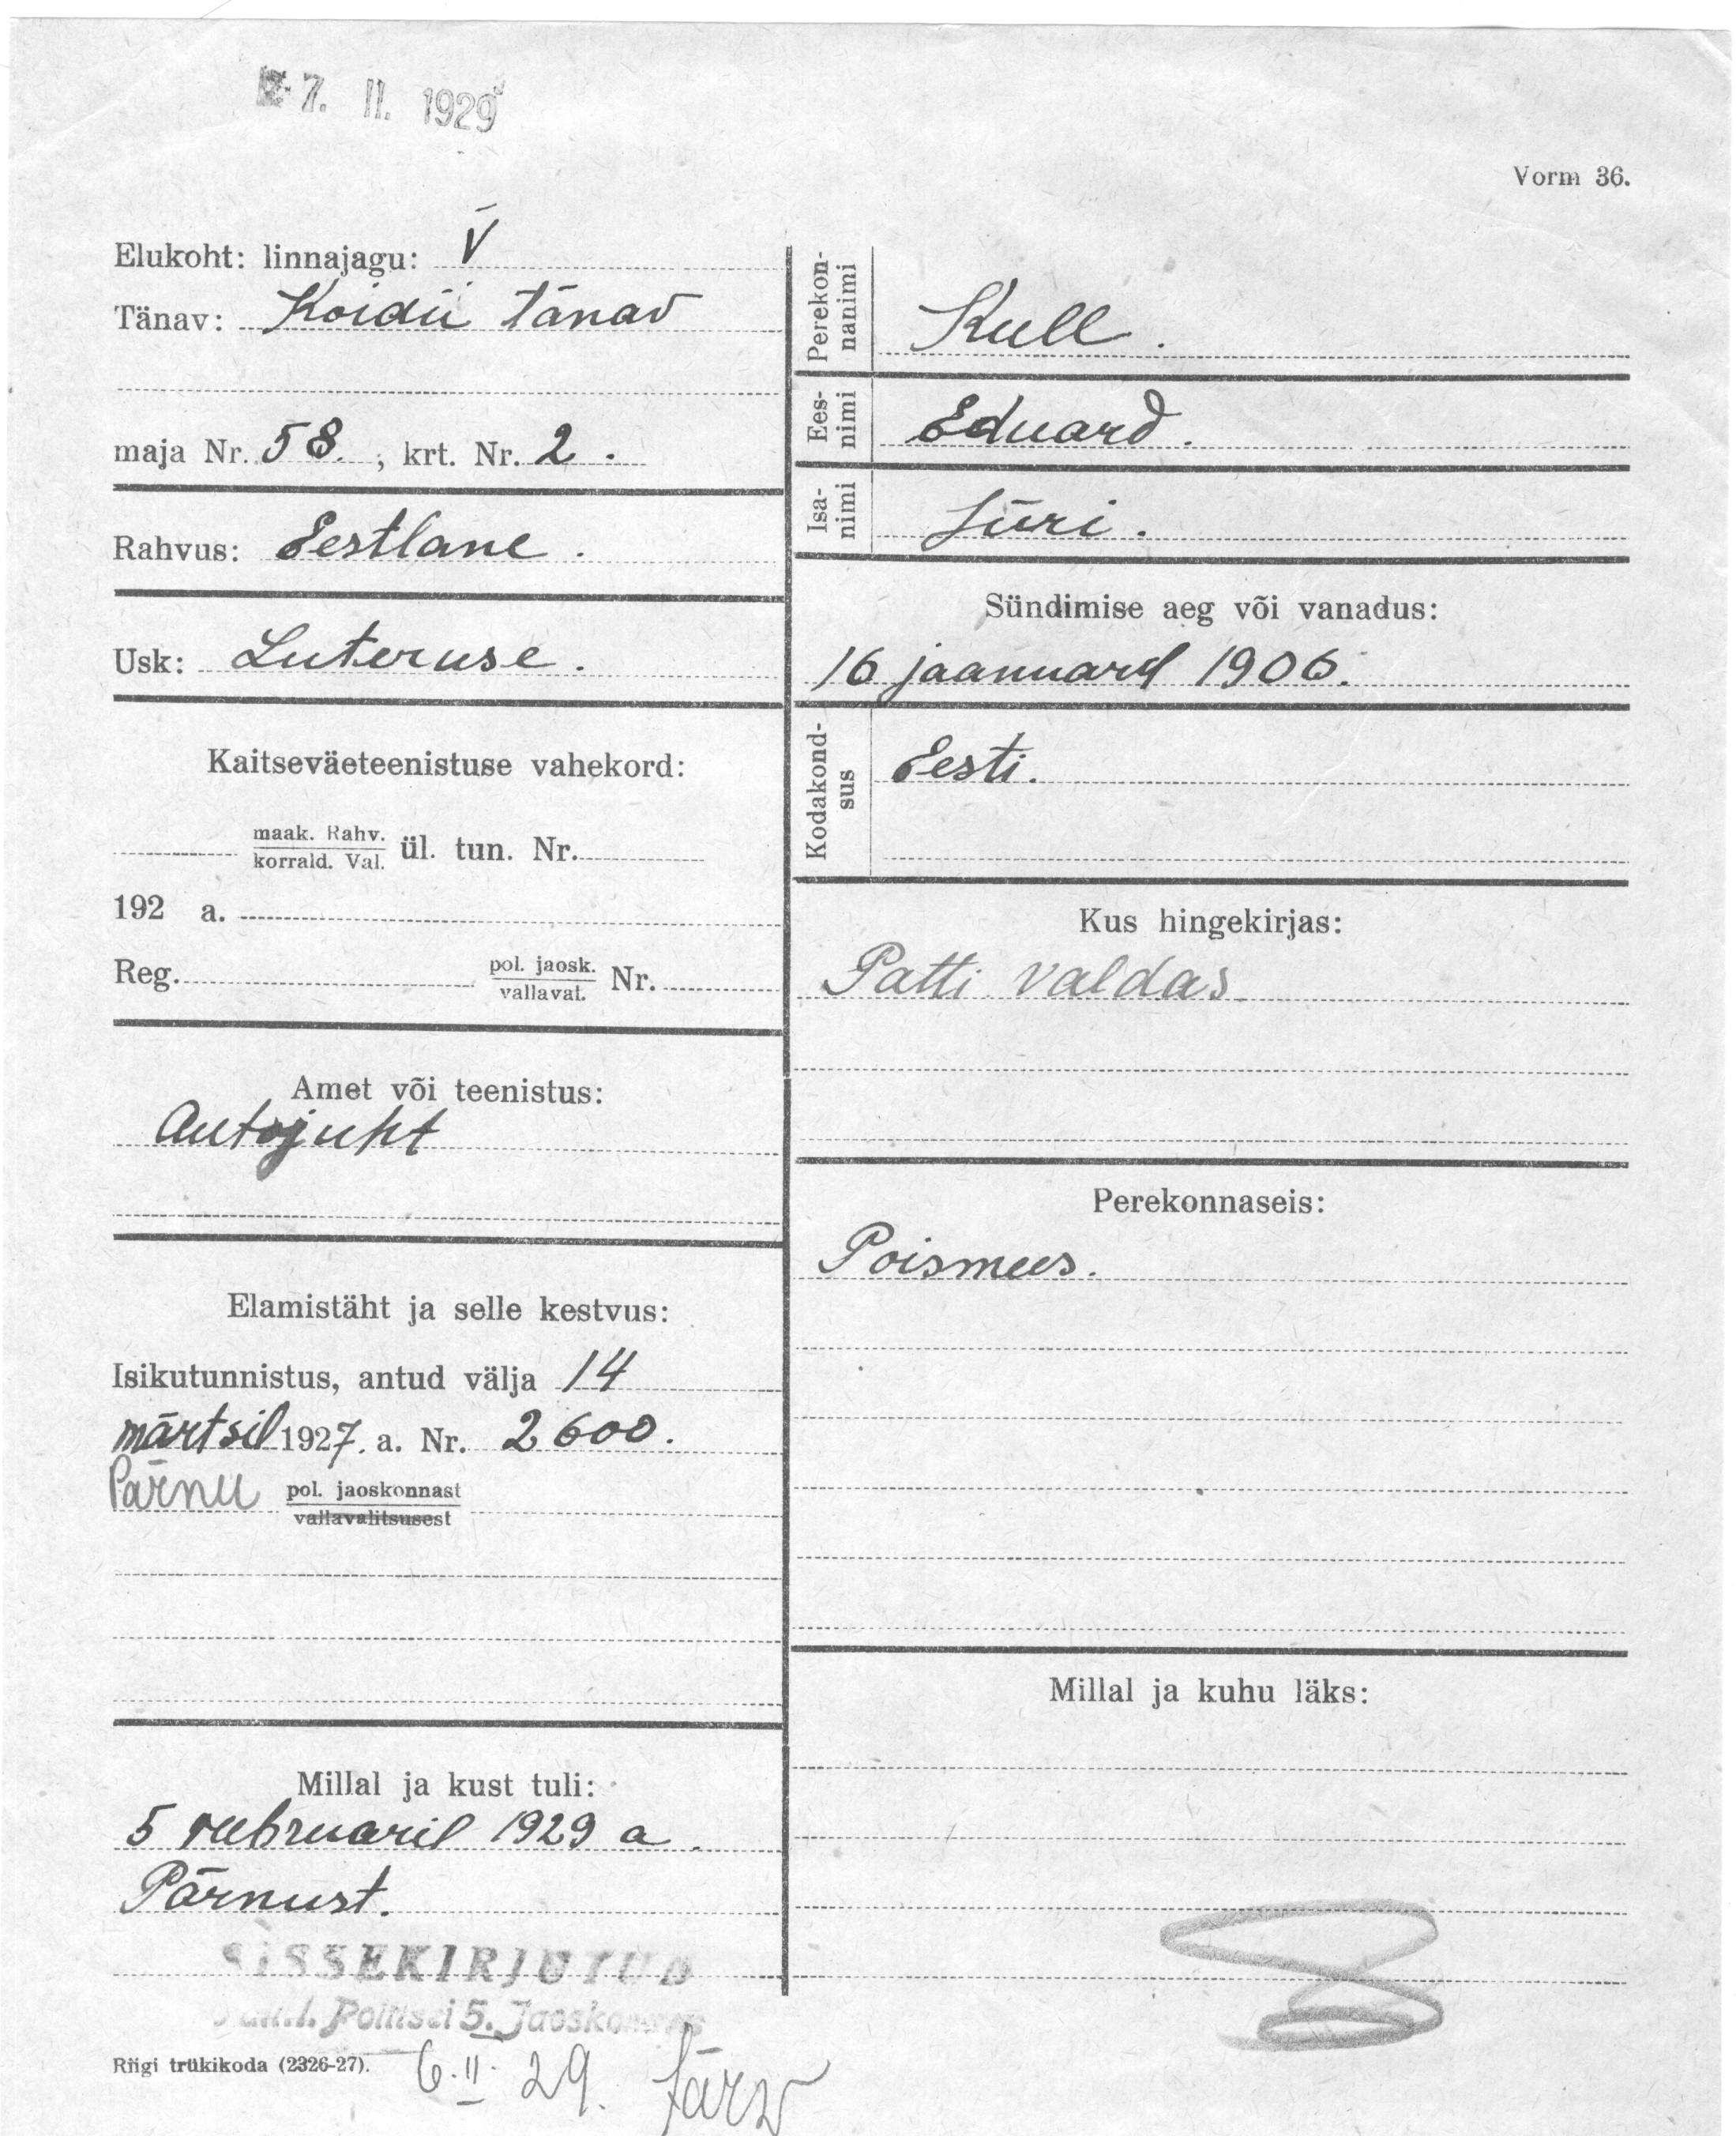 7. II. 1929
Vorm 36.
Elukoht: linnajagu: V
Tänav: Koidu tänav
maja Nr. 58. , krt. Nr. 2.
Rahvus: Eestlane.
Usk: Luteruse.
Kaitseväeteenistuse vahekord:
maak. Rahv.
korrald. Val. ül. tun. Nr.
192 a.
Reg. pol. jaosk.
vallaval. Nr.
Amet või teenistus:
Autojuht
Elamistäht ja selle kestvus:
Isikutunnistus, antud välja 14
märtsil 1927. a. Nr. 2600.
Pärnu pol. jaoskonnast
vallavalitsusest
Millal ja kust tuli:
5 veebruaril 1929 a.
Pärnust.
SISSEKIRJUTUD
Politsei 5. Jaoskonnas
Riigi trükikoda (2326-27).
6.II.29. Järv
Perekon-
nanimi
Kull.
Ees-
nimi
Eduard.
Isa-
nimi
Jüri.
Sündimise aeg või vanadus:
16 jaanuaril 1906.
Kodakond-
sus
Eesti.
Kus hingekirjas:
Patti valdas
Perekonnaseis:
Poismees.
Millal ja kuhu läks: